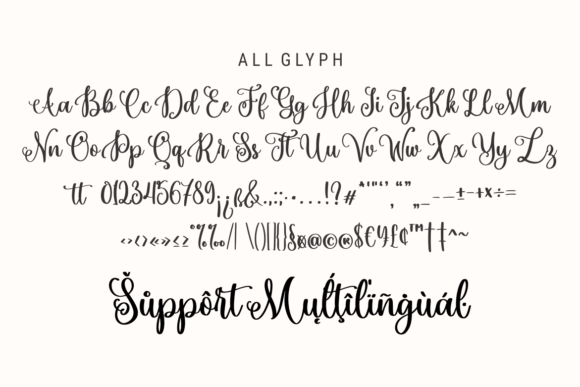 ALL GLYPH
Aa Bb Cc Dd Ee Ff Gg Hh Ii Jj Kk Ll Mm
Nn Oo Pp Qq Rr Ss Tt Uu Vv Ww Xx Yy Zz
tt 0123456789¡¿ß&.,:;·…!?#*'"‘’‚“”„_–—-±-+×÷=
‹›‹›«»≤≥°%‰/|\()[]{}§¤@©®$€¥£¢™†‡^~
Šůppôrt Mųľţîľïñġùáŀ